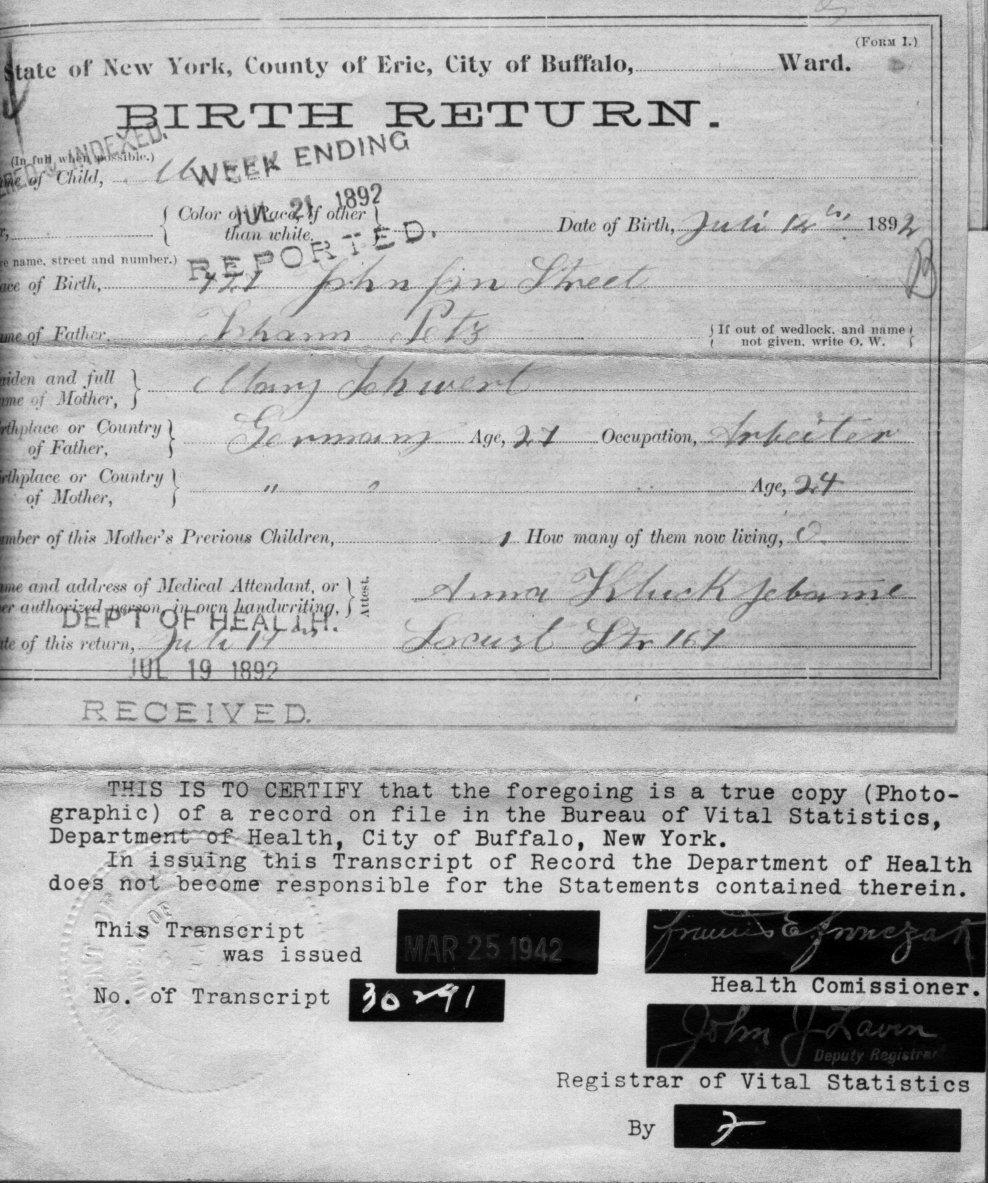 (FORM I.)
State of New York, County of Erie, City of Buffalo, Ward.
BIRTH RETURN.
RED & INDEXED.
(In full when possible.)
WEEK ENDING
me of Child,
JUL 21 1892
Color or Race, if other
than white,
Date of Birth, Juli 1892
REPORTED.
re name, street and number.)
ace of Birth, Street
B
ame of Father, Johann Petz
If out of wedlock, and name
not given, write O. W.
aiden and full
ame of Mother, Mary Schwert
rthplace or Country
of Father, Germany Age, 27 Occupation, Arbeiter
rthplace or Country
of Mother, " " Age, 24
umber of this Mother's Previous Children, 1 How many of them now living, 0
ame and address of Medical Attendant, or
er authorized person, in own handwriting,
Attest.
Anna Kluck
DEP'T OF HEALTH.
te of this return, Juli Locust Str 167
JUL 19 1892
RECEIVED.
THIS IS TO CERTIFY that the foregoing is a true copy (Photo-
graphic) of a record on file in the Bureau of Vital Statistics,
Department of Health, City of Buffalo, New York.
In issuing this Transcript of Record the Department of Health
does not become responsible for the Statements contained therein.
This Transcript
was issued MAR 25 1942
Francis E Fronczak
Health Comissioner.
No. of Transcript 30291
John J Lavin
Deputy Registrar
Registrar of Vital Statistics
By